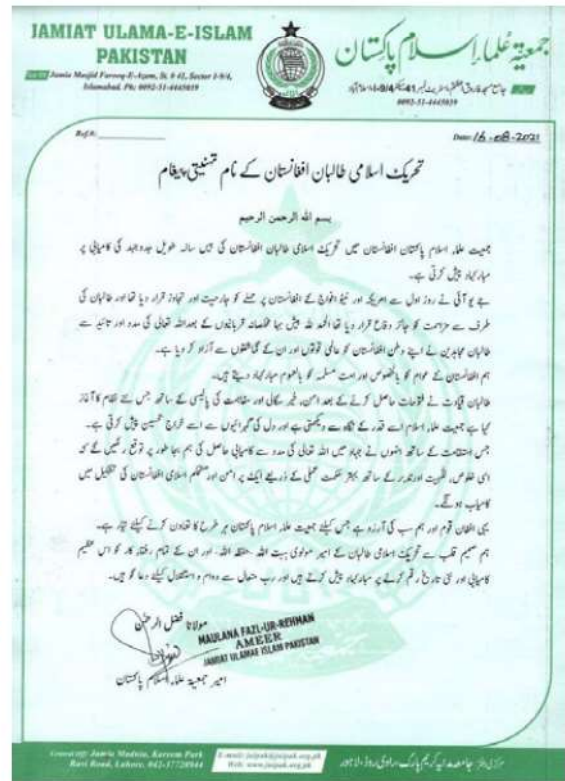 JAMIAT ULAMA-E-ISLAM
PAKISTAN
Jamia Masjid Farooq-E-Azam, St. # 41, Sector I-9/4,
Islamabad. Ph: 0092-51-4445019
جمعیۃ علماء اسلام پاکستان
جامع مسجد فاروق اعظم اسٹریٹ نمبر 41 سیکٹر I-9/4 اسلام آباد
0092-51-4445019
Ref.#:
Date: 16-08-2021
تحریک اسلامی طالبان افغانستان کے نام تہنیتی پیغام
بسم اللہ الرحمن الرحیم
جمعیت علماء اسلام پاکستان افغانستان میں تحریک اسلامی طالبان افغانستان کی بیس سالہ طویل جدوجہد کی کامیابی پر
مبارکباد پیش کرتی ہے۔
جے یو آئی نے روز اول سے امریکہ اور نیٹو افواج کے افغانستان پر حملے کو جارحیت اور تجاوز قرار دیا تھا اور طالبان کی
طرف سے مزاحمت کو جائز دفاع قرار دیا تھا الحمد للہ بیش بہا مخلصانہ قربانیوں کے بعد اللہ تعالی کی مدد اور تائید سے
طالبان مجاہدین نے اپنے وطن افغانستان کو عالمی قوتوں اور ان کے گماشتوں سے آزاد کر دیا ہے۔
ہم افغانستان کے عوام کو بالخصوص اور امت مسلمہ کو بالعموم مبارکباد دیتے ہیں۔
طالبان قیادت نے فتوحات حاصل کرنے کے بعد امن، خیر سگالی اور مفاہمت کی پالیسی کے ساتھ جس نئے نظام کا آغاز
کیا ہے جمعیت علماء اسلام اسے قدر کے نگاہ سے دیکھتی ہے اور دل کی گہرائیوں سے اسے خراج تحسین پیش کرتی ہے۔
جس استقامت کے ساتھ انہوں نے جہاد میں اللہ تعالی کی مدد سے کامیابی حاصل کی ہم بجا طور پر توقع رکھیں گے کہ
اسی خلوص، للہیت اور تدبر کے ساتھ بہتر حکمت عملی کے ذریعے ایک پر امن اور مستحکم اسلامی افغانستان کی تشکیل میں
کامیاب ہونگے۔
یہی افغان قوم اور ہم سب کی آرزو ہے جس کیلئے جمعیت علماء اسلام پاکستان ہر طرح کا تعاون کرنے کیلئے تیار ہے۔
ہم صمیم قلب سے تحریک اسلامی طالبان کے امیر مولوی ہبت اللہ حفظہ اللہ اور ان کے تمام رفقاء کار کو اس عظیم
کامیابی اور نئی تاریخ رقم کرنے پر مبارکباد پیش کرتے ہیں اور رب متعال سے دوام و استقلال کیلئے دعا گو ہیں۔
مولانا فضل الرحمن
MAULANA FAZL-UR-REHMAN
AMEER
JAMIAT ULAMAE ISLAM PAKISTAN
امیر جمعیۃ علماء اسلام پاکستان
Jamia Madnia, Kareem Park
Ravi Road, Lahore. 042-37720844
E-mail: juipak@juipak.org.pk
Web: www.juipak.org.pk
مرکزی دفتر: جامعہ مدنیہ کریم پارک، راوی روڈ، لاہور